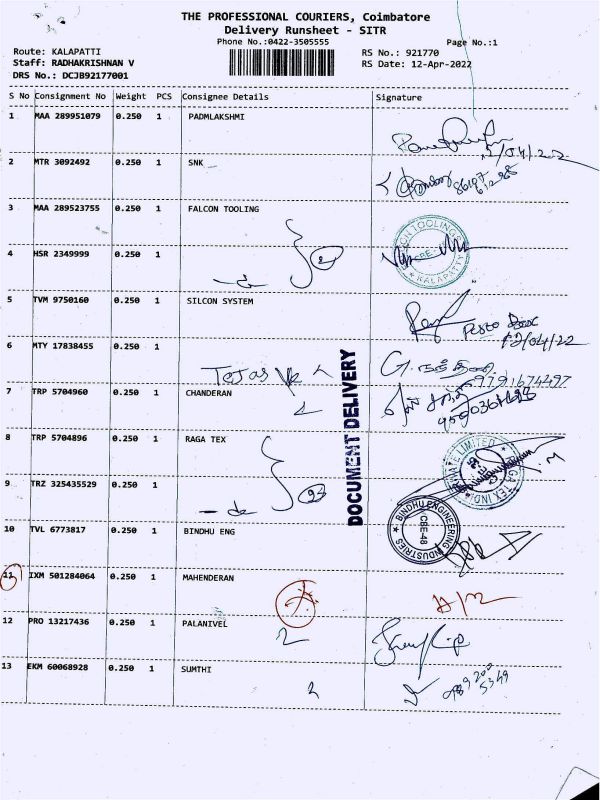 THE PROFESSIONAL COURIERS, Coimbatore
Delivery Runsheet - SITR
Phone No.:0422-3505555
Page No.:1
Route: KALAPATTI
RS No.: 921770
Staff: RADHAKRISHNAN V
RS Date: 12-Apr-2022
DRS No.: DCJB92177001
S No Consignment No Weight PCS Consignee Details Signature
1 MAA 289951079 0.250 1 PADMLAKSHMI
2 MTR 3092492 0.250 1 SNK
3 MAA 289523755 0.250 1 FALCON TOOLING
4 HSR 2349999 0.250 1
5 TVM 9750160 0.250 1 SILCON SYSTEM
6 MTY 17838455 0.250 1
7 TRP 5704960 0.250 1 CHANDERAN
8 TRP 5704896 0.250 1 RAGA TEX
9 TRZ 325435529 0.250 1
DOCUMENT DELIVERY
10 TVL 6773817 0.250 1 BINDHU ENG
BINDHU ENGINEERING INDUSTRIES
CBE-48
11 IXM 501284064 0.250 1 MAHENDERAN
12 PRO 13217436 0.250 1 PALANIVEL
13 EKM 60068928 0.250 1 SUMTHI